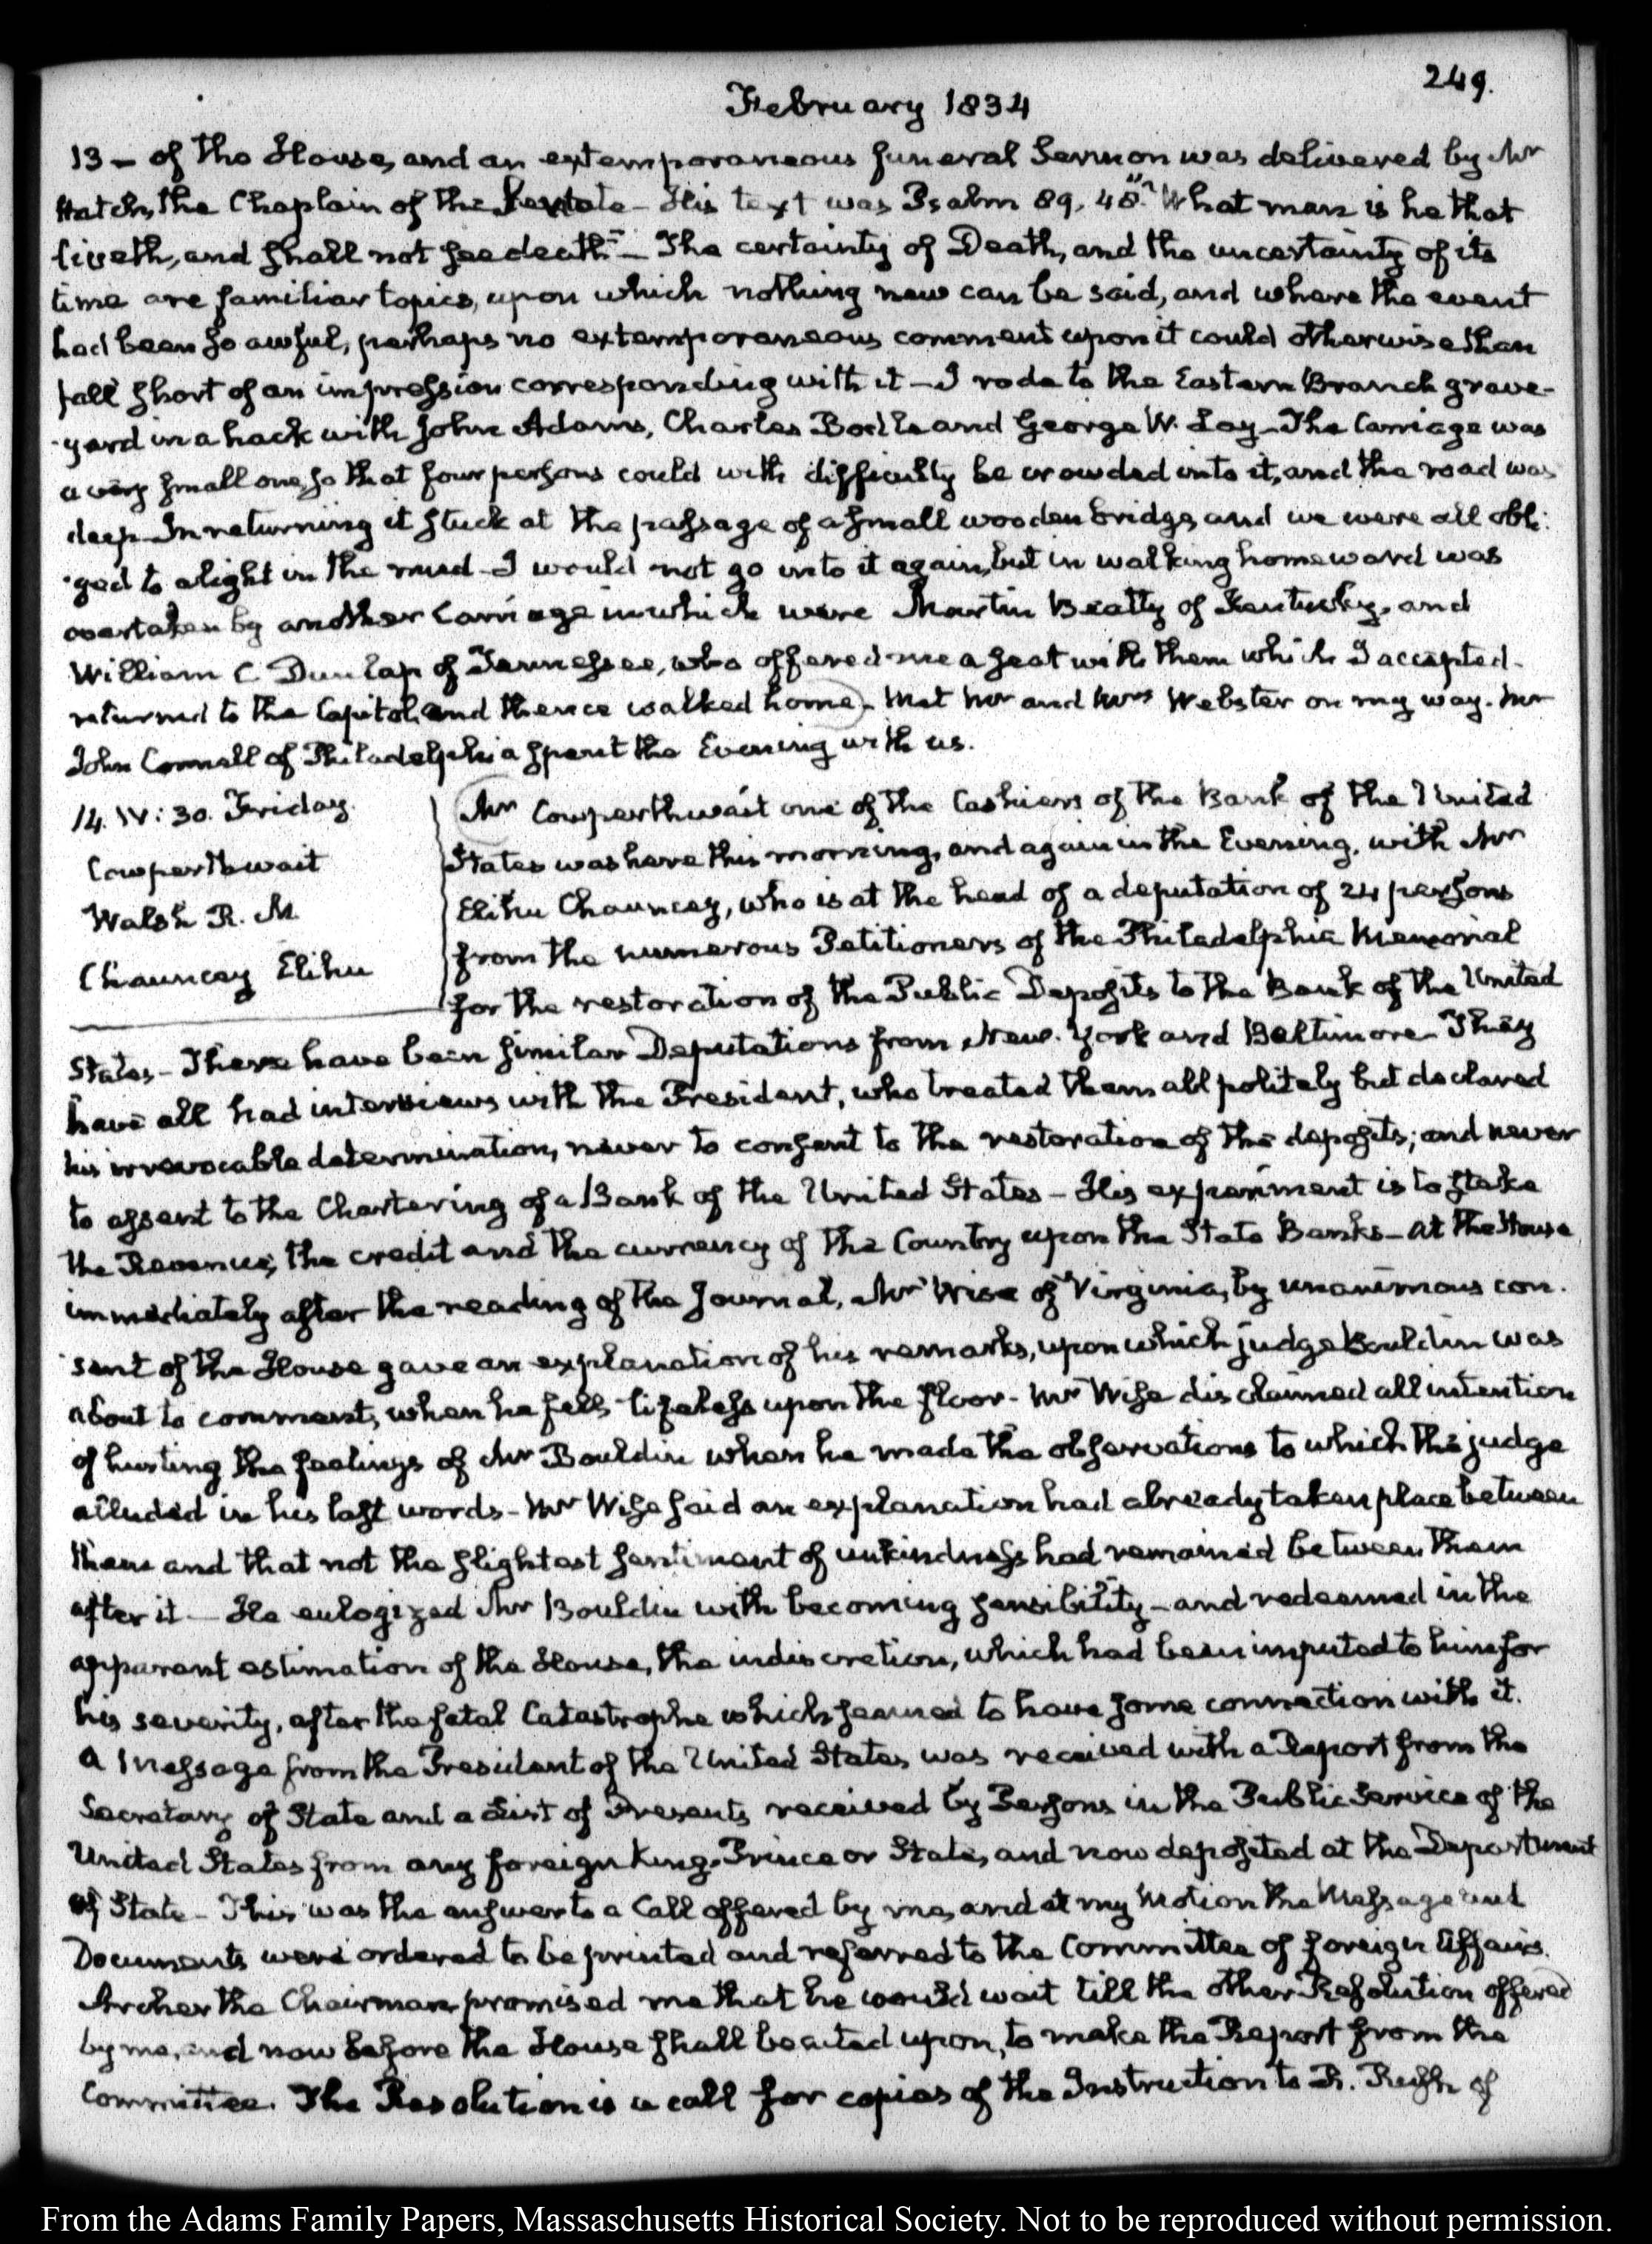 249.
February 1834
13 – of the House, and an extemporaneous funeral Sermon was delivered by Mr
Hatch, the Chaplain of the Senate – His text was Psalm 89. 48. "What man is he that
liveth, and shall not see death" – The certainty of Death, and the uncertainty of its
time are familiar topics, upon which nothing new can be said, and where the event
had been so awful, perhaps no extemporaneous comment upon it could otherwise than
fall short of an impression corresponding with it – I rode to the Eastern Branch grave-
yard in a hack with John Adams, Charles Bodle and George W. Lay – The Carriage was
a very small one, so that four persons could with difficulty be crowded into it, and the road was
deep – In returning it stuck at the passage of a small wooden bridge, and we were all obli-
ged to alight in the mud – I would not go into it again, but in walking homeward was
overtaken by another Carriage in which were Martin Beatty of Kentucky, and
William C Dunlap of Tennessee, who offered me a seat with them which I accepted –
returned to the Capitol, and thence walked home. Met Mr and Mrs Webster on my way. Mr
John Connell of Philadelphia spent the Evening with us.
14. IV: 30. Friday.
Cowperthwait
Walsh R. M.
Chauncey Elihu
Mr Cowperthwait one of the Cashiers of the Bank of the United
States was here this morning, and again in the Evening, with Mr
Elihu Chauncey, who is at the head of a deputation of 24 persons
from the numerous Petitioners of the Philadelphia Memorial
for the restoration of the Public Deposits to the Bank of the United
States – There have been similar Deputations from New-York and Baltimore – They
have all had interviews with the President, who treated them all politely but declared
his irrevocable determination, never to consent to the restoration of the deposits; and never
to assent to the Chartering of a Bank of the United States – His experiment is to stake
the Revenue, the credit and the currency of the Country upon the State Banks – At the House
immediately after the reading of the Journal, Mr Wise of Virginia, by unanimous con-
sent of the House gave an explanation of his remarks, upon which judge Bouldin was
about to comment, when he fell lifeless upon the floor – Mr Wise disclaimed all intention
of hurting the feelings of Mr Bouldin when he made the observations to which the judge
alluded in his last words – Mr Wise said an explanation had already taken place between
them and that not the slightest sentiment of unkindness had remained between them
after it – He eulogized Mr Bouldin with becoming sensibility – and redeemed in the
apparent estimation of the House, the indiscretion, which had been imputed to him for
his severity, after the fatal Catastrophe which seemed to have some connection with it.
A Message from the President of the United States, was received with a Report from the
Secretary of State and a List of Presents received by Persons in the Public Service of the
United States from any foreign King, Prince or State, and now deposited at the Department
of State – This was the answer to a Call offered by me, and at my Motion the Message and
Documents were ordered to be printed and referred to the Committee of foreign Affairs.
Archer the Chairman promised me that he would wait till the other Resolution offered
by me, and now before the House shall be acted upon, to make the Report from the
Committee. The Resolution is a call for copies of the Instruction to R. Rush of
From the Adams Family Papers, Massachusetts Historical Society. Not to be reproduced without permission.